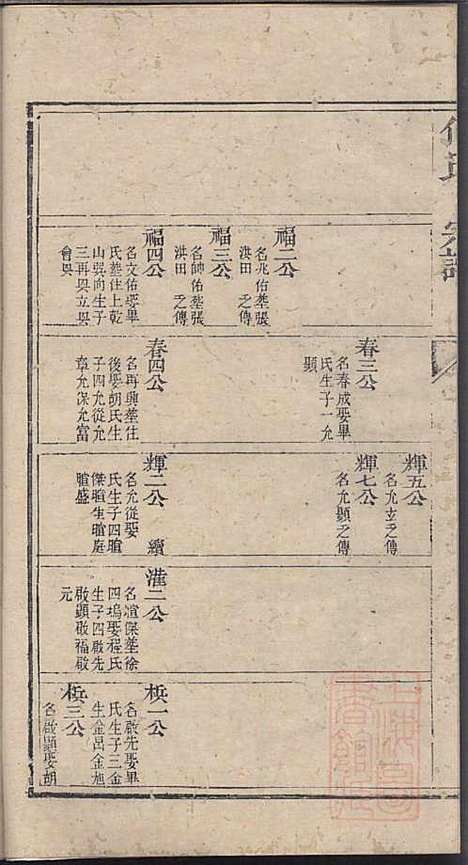 福二公
名兆佑葬張
洪田 之傳
福三公
名帥佑葬張
洪田 之傳
福四公
名文佑娶畢
氏葬住上乾
山巽向生子
三再興立興
會興
春三公
名春成娶畢
氏生子一允
顯
春四公
名再興葬住
後娶胡氏生
子四允從允
章允保允富
輝五公
名允玄之傳
輝七公
名允顯之傳
輝二公 續
名允從娶
氏生子四暄
傑暄生暄庭
暄盛
漌二公
名暄傑葬徐
四塢娶程氏
生子四啟先
啟顯啟福啟
元
梹一公
名啟先娶畢
氏生子三金
生金呂金旭
梹三公
名啟顯娶胡